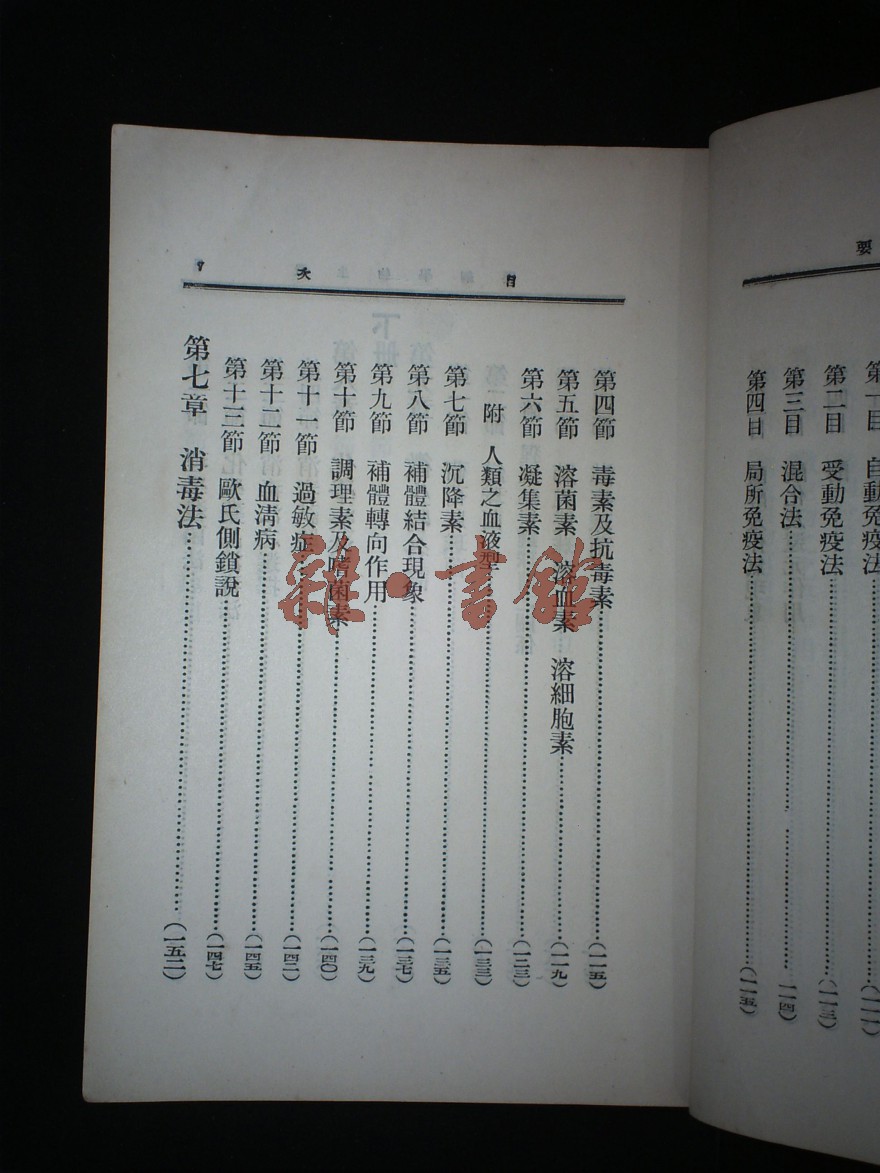 要
第一目 自動免疫法……(一一一)
第二目 受動免疫法……(一一三)
第三目 混合法……一一四)
第四目 局所免疫法……(一一五)
目 次
第四節 毒素及抗毒素……(一一五)
第五節 溶菌素 溶血素 溶細胞素……(一一九)
第六節 凝集素……(一二三)
附 人類之血液型……(一三三)
第七節 沉降素……(一三五)
第八節 補體結合現象……(一三七)
第九節 補體轉向作用……(一三九)
第十節 調理素及嗜菌素……(一四〇)
第十一節 過敏症……(一四二)
第十二節 血清病……(一四五)
第十三節 歐氏側鎖說……(一四七)
第七章 消毒法……(一五二)
雜·書館